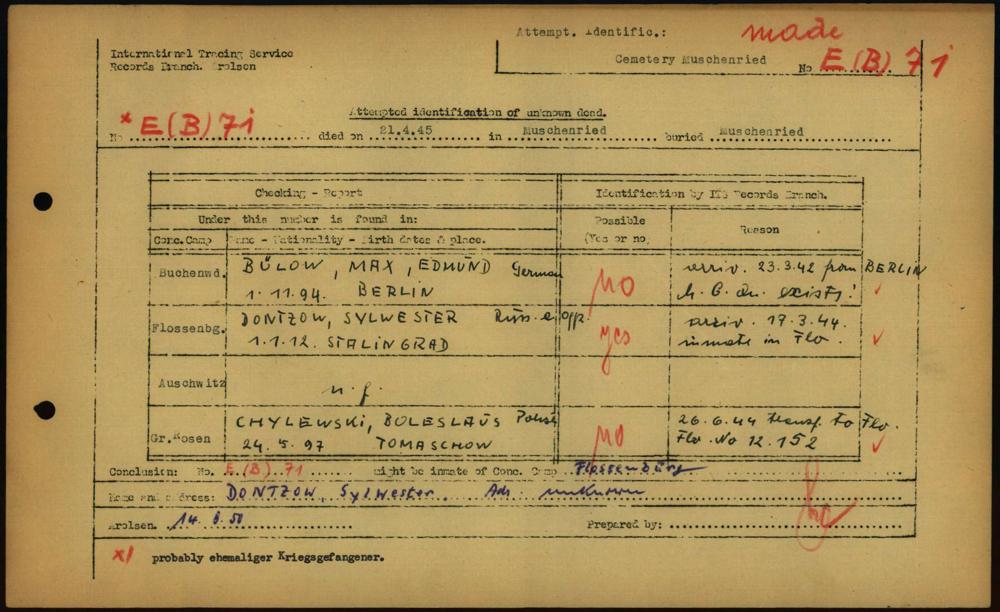 Attempt. Identific.: made
International Tracing Service
Records Branch. Arolsen
Cemetery Muschenried
No E(B) 71
Attempted identification of unknown dead.
* E(B) 71
No ........ died on 21.4.45 in Muschenried buried Muschenried
Checking - Report
Identification by ITS Records Branch.
Under this number is found in:
Possible
(Yes or no)
Reason
Conc.Camp
Name - Nationality - Birth dates & place.
Buchenwd.
BÜLOW, MAX, EDMUND German
1.11.94. BERLIN
no
arriv. 23.3.42 from BERLIN
exists!
Flossenbg.
DONTZOW, SYLWESTER Russ. Offz.
1.1.12. STALINGRAD
yes
arriv. 17.3.44.
inmate in Flo.
Auschwitz
n.f.
Gr.Rosen
CHYLEWSKI, BOLESLAUS Polish
24.5.97 TOMASCHOW
no
26.6.44 transf. to Flo.
Flo. No 12.152
Conclusion: No. E(B) 71 might be inmate of Conc. Camp Flossenbürg
Name and address: DONTZOW, Sylwester. Adr. unknown
Arolsen. 14.6.50
Prepared by:
x) probably ehemaliger Kriegsgefangener.